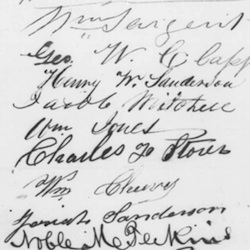 Wm Sargent
Geo. W. Clapp
Henry W. Sanderson
Jacob Mitchell
Wm Jones
Charles Stover
Wm Cheevy
Sanderson
Noble McPerkins